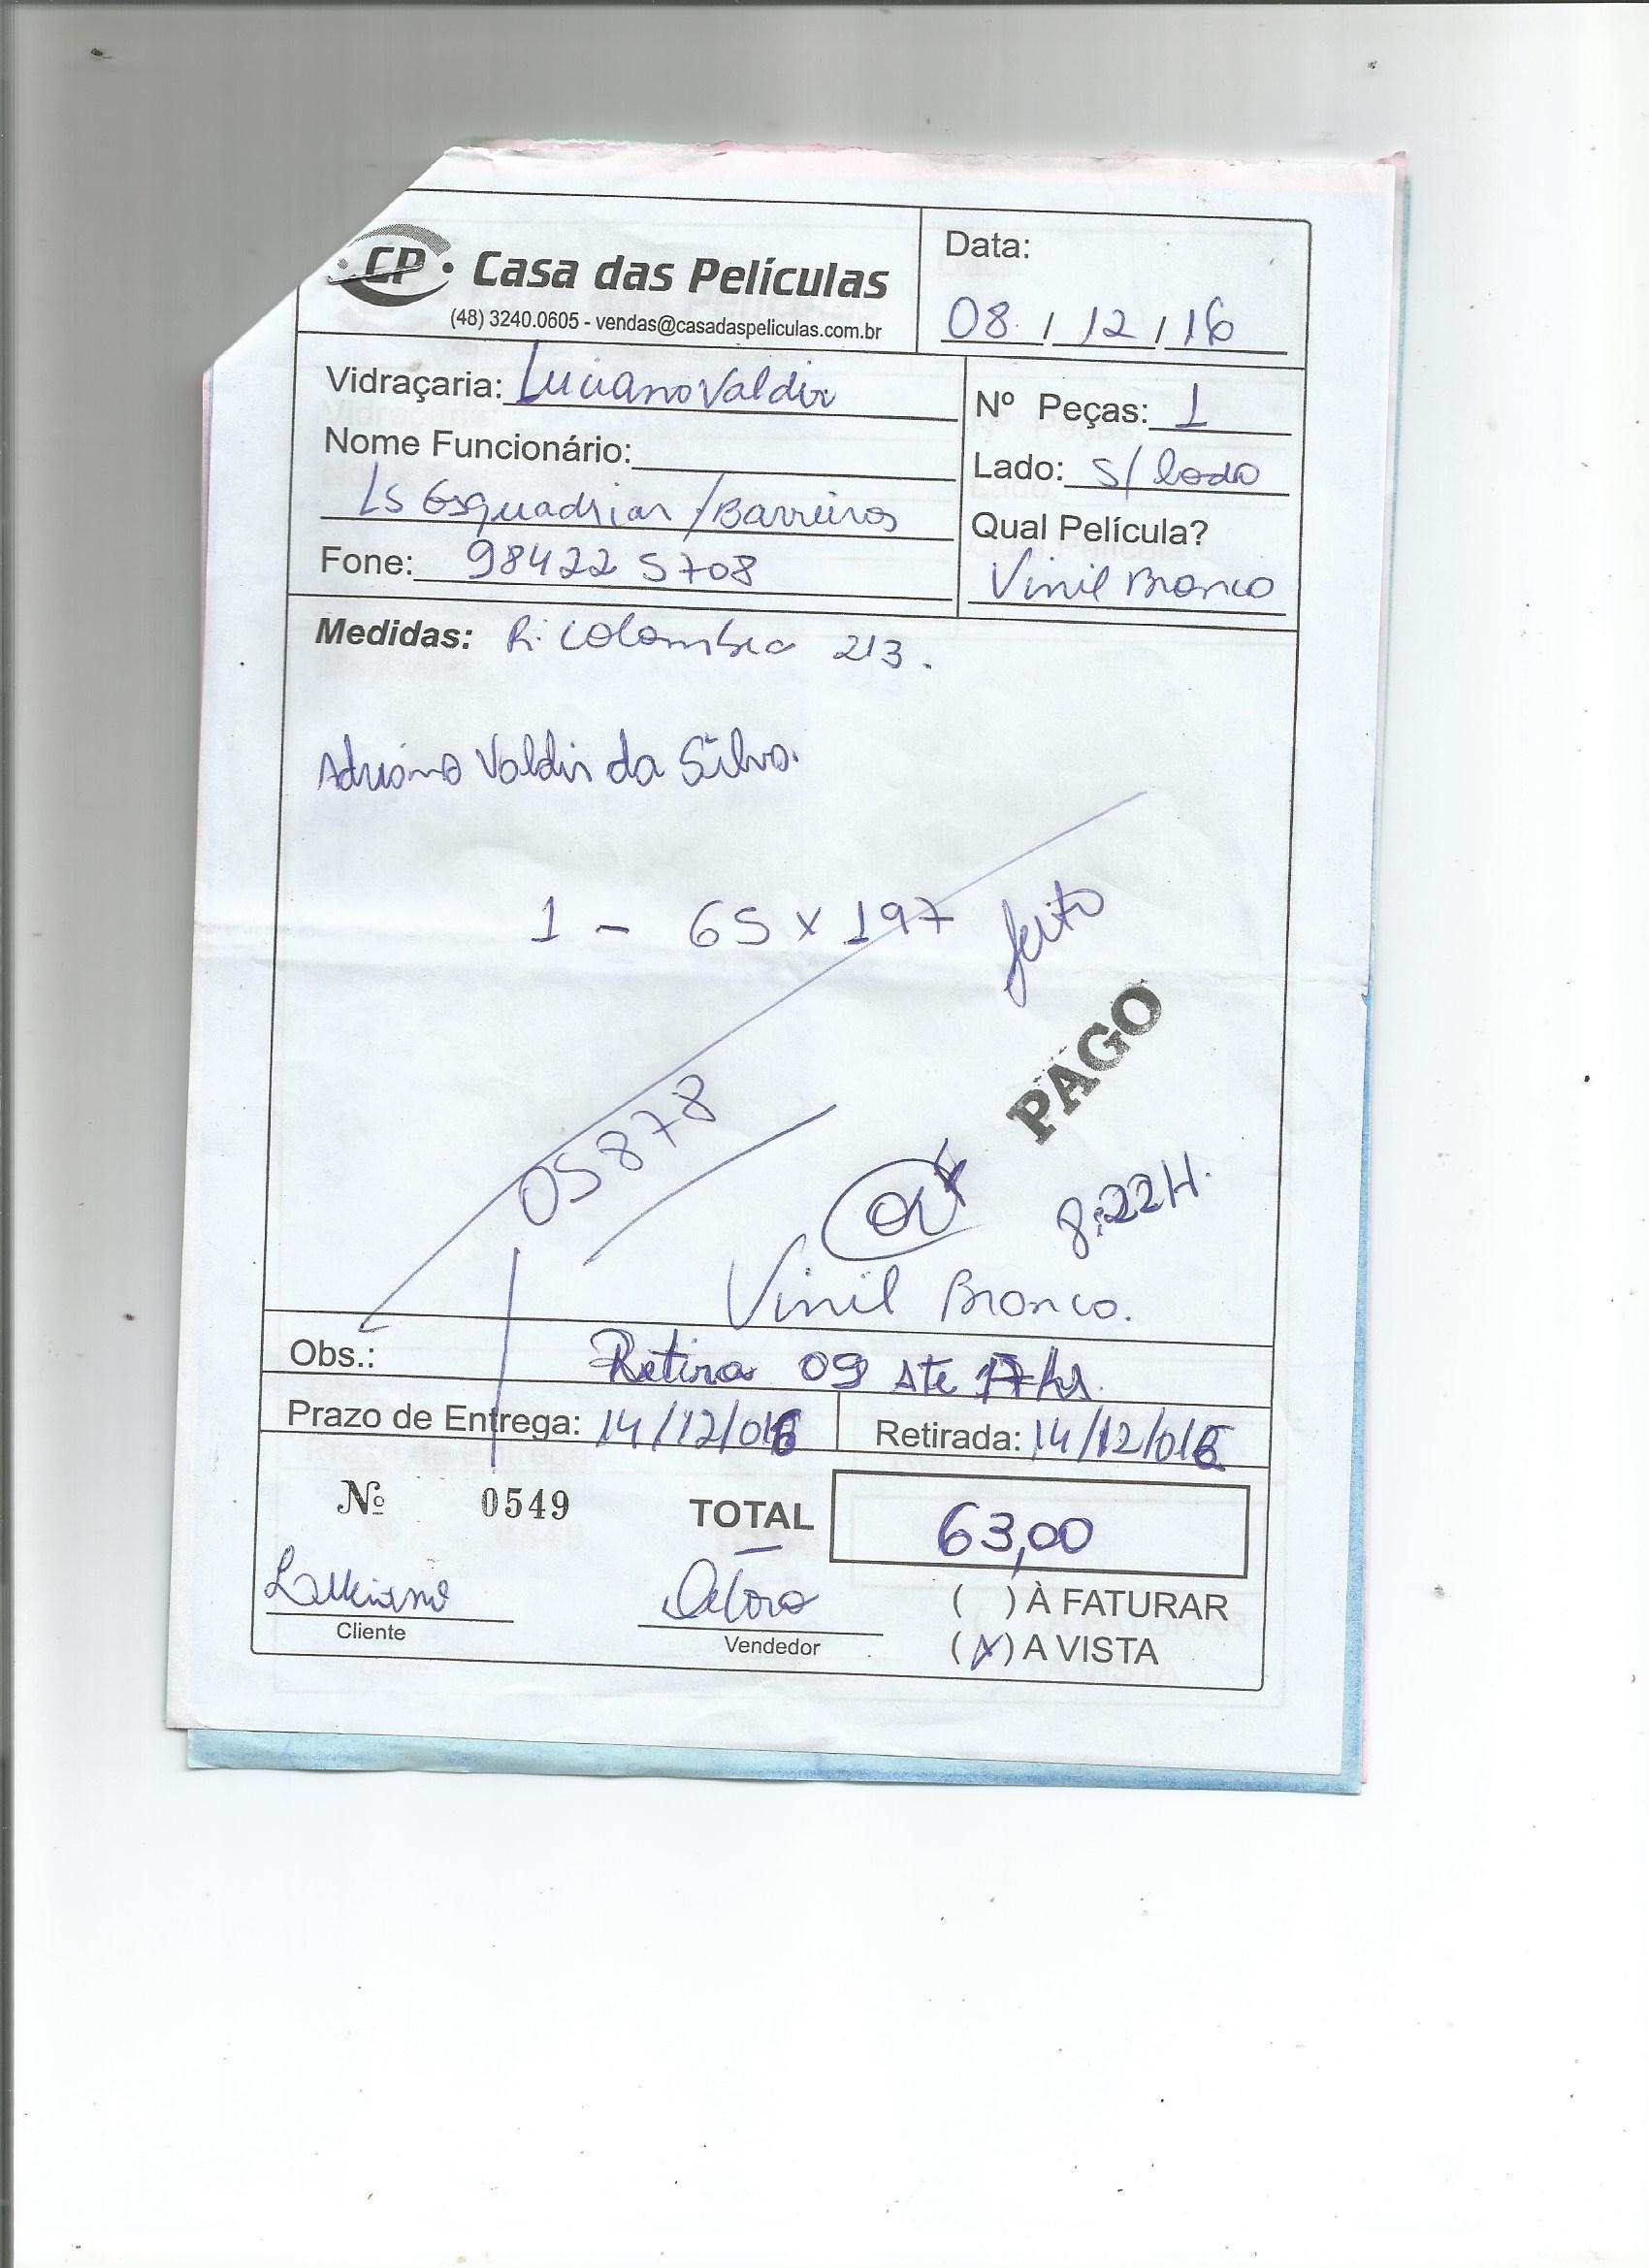 CP Casa das Películas
(48) 3240.0605 - vendas@casadaspeliculas.com.br
Data:
08 / 12 / 16
Vidraçaria: Luciano Valdir
Nome Funcionário:
Ls Esquadrias / Barreiros
Fone: 98422 5708
Nº Peças: 1
Lado: S/ lado
Qual Película?
Vinil Branco
Medidas: R: Colombia 213.
Adriano Valdir da Silva.
1 - 65 x 197 feito
PAGO
05878
8:22H.
Vinil Branco.
Obs.: Retira 09 Ate 17hs.
Prazo de Entrega: 14/12/016
Retirada: 14/12/016
Nº 0549
TOTAL 63,00
Luciano
Cliente
Vendedor
( ) À FATURAR
(X) A VISTA